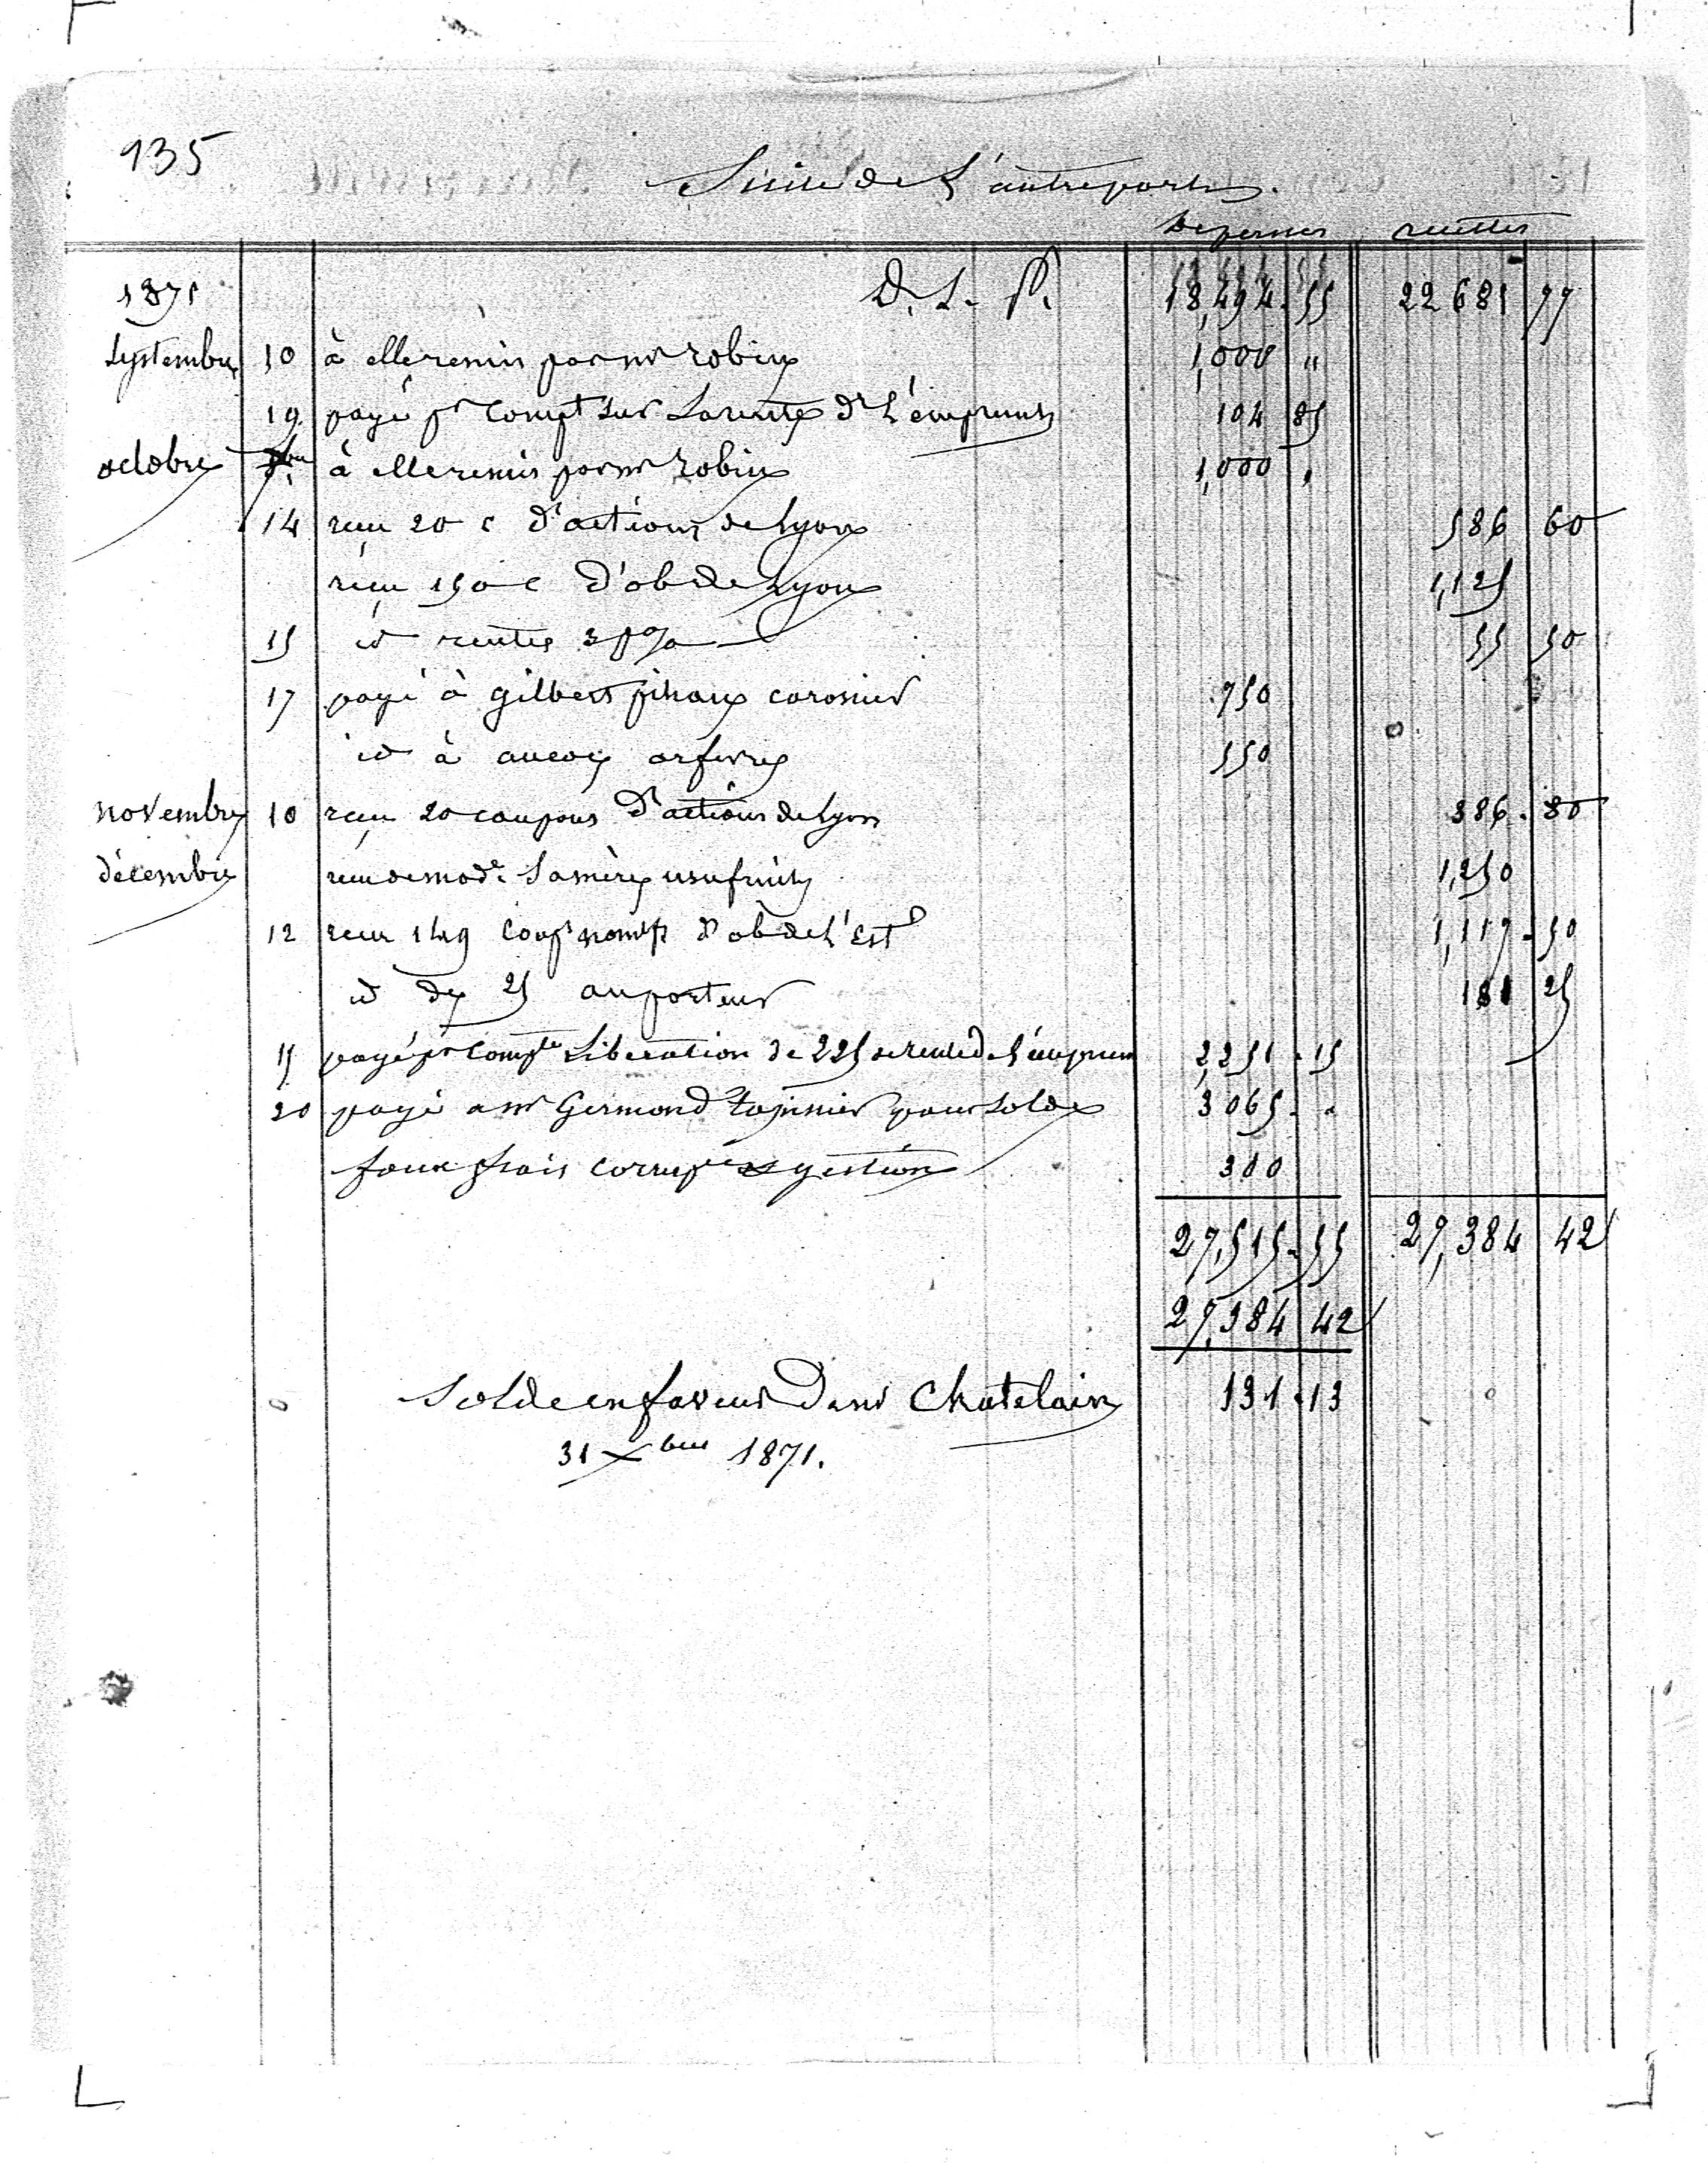 135
Suite de L'autrepart.
Depenses recettes
1871 D. L. P. 18,494.55 22681 77
Septembre 10 à elle remis par mr robin 1,000 "
19 payé pr Compt sur La rente de L'emprunt 104 85
octobre à elle remis par mr Robin 1,000 "
14 recu 20 c d'actions de Lyon 586 60
recu 150 c d'ob de Lyon 1,125
15 id rentes 3 p % 55 50
17 payé à gilbert carossier 750
id à aucoq orfevre 550
novembre 10 recu 20 coupons d'actions de Lyon 386.80
décembre recu de made. Sa mère usufruit 1,250
12 recu 149 Coups nomifs d'ob de L'Est 1,117.50
id de 25 au porteur 181 25
15 payé pr Compte Liberation de 225 de rente de L'emprunt 2,251.15
20 payé a mr Germond tapissier pour Solde 3065 . "
faux frais corresp et gestion 300
27,515.55 27,384 42
27,384 42
Solde en faveur de mr Chatelain 131.13
31 Xbre 1871.